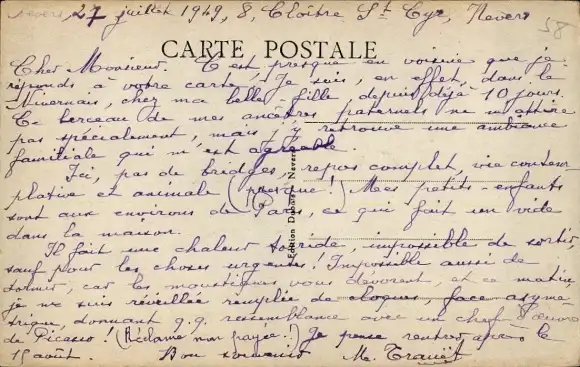 27 juillet 1949, 8, Cloître St Cyr, Nevers
58
CARTE POSTALE
Cher Monsieur. C'est presque en voisine que je
réponds à votre carte! Je suis, en effet, dans le
Nivernais, chez ma belle-fille, depuis déjà 10 jours.
Ce berceau de mes ancêtres paternels ne m'attire
pas spécialement, mais j'y retrouve une ambiance
familiale qui m'est agréable.
Ici, pas de bridges, repos complet, vie contem-
plative et animale (presque!) Mes petits-enfants
sont aux environs de Paris, ce qui fait un vide
dans la maison.
Il fait une chaleur torride, impossible de sortir,
sauf pour les choses urgentes! Impossible aussi de
dormir, car les moustiques vous dévorent, et ce matin
je me suis réveillée remplie de cloques, face asymé-
trique, donnant q.q. ressemblance avec un chef d'œuvre
de Picasso! (Réclame non payée!) Je pense rentrer après le
15 août. Bon souvenir M.
Edition Nevers